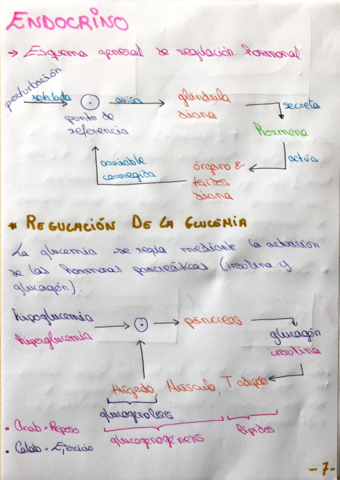 ENDOCRINO
→ Esquema general de regulación hormonal
perturbación
detectada
avisa
glándula
diana
secreta
punto de
referencia
Hormona
variable
corregida
órgano &
tejidos
diana
actúa
* REGULACIÓN DE LA GLUCEMIA
La glucemia se regla mediante la actuación
de las hormonas pancreáticas (insulina y
glucagón).
hipoglucemia
hipoglucemia
páncreas
glucagón
insulina
Hígado, Músculo, T adiposo
glucogenolisis
glucogenogénesis
lípidos
• Anab = Reposo
• Catab = Ejercicio
-7-